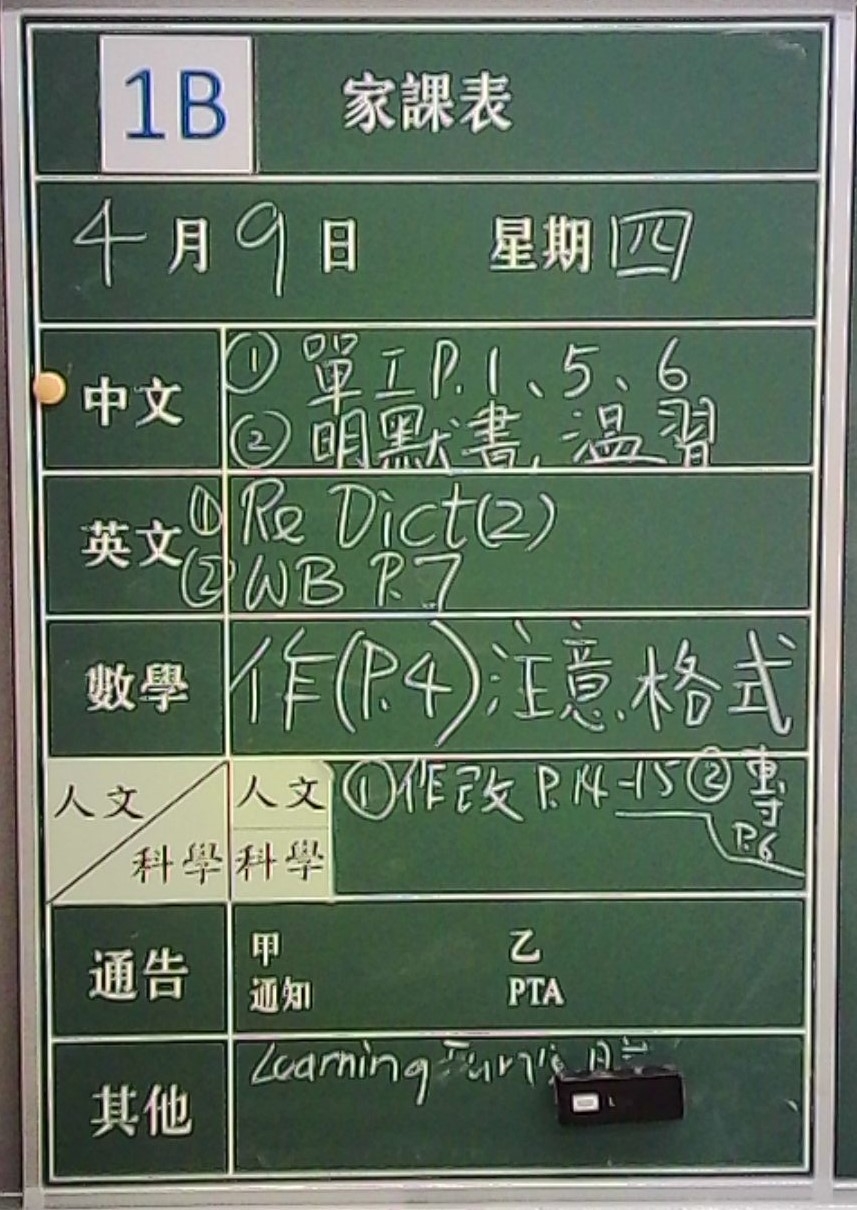 1B 家課表
4月9日 星期四
中文
① 單工P.1、5、6
② 明默書,溫習
英文
① Re Dict(2)
② WB P.7
數學
作(P.4)注意格式
人文
科學
人文
科學
①作改 P.14-15 ②
P.6
通告
甲 乙
通知 PTA
其他
Learning